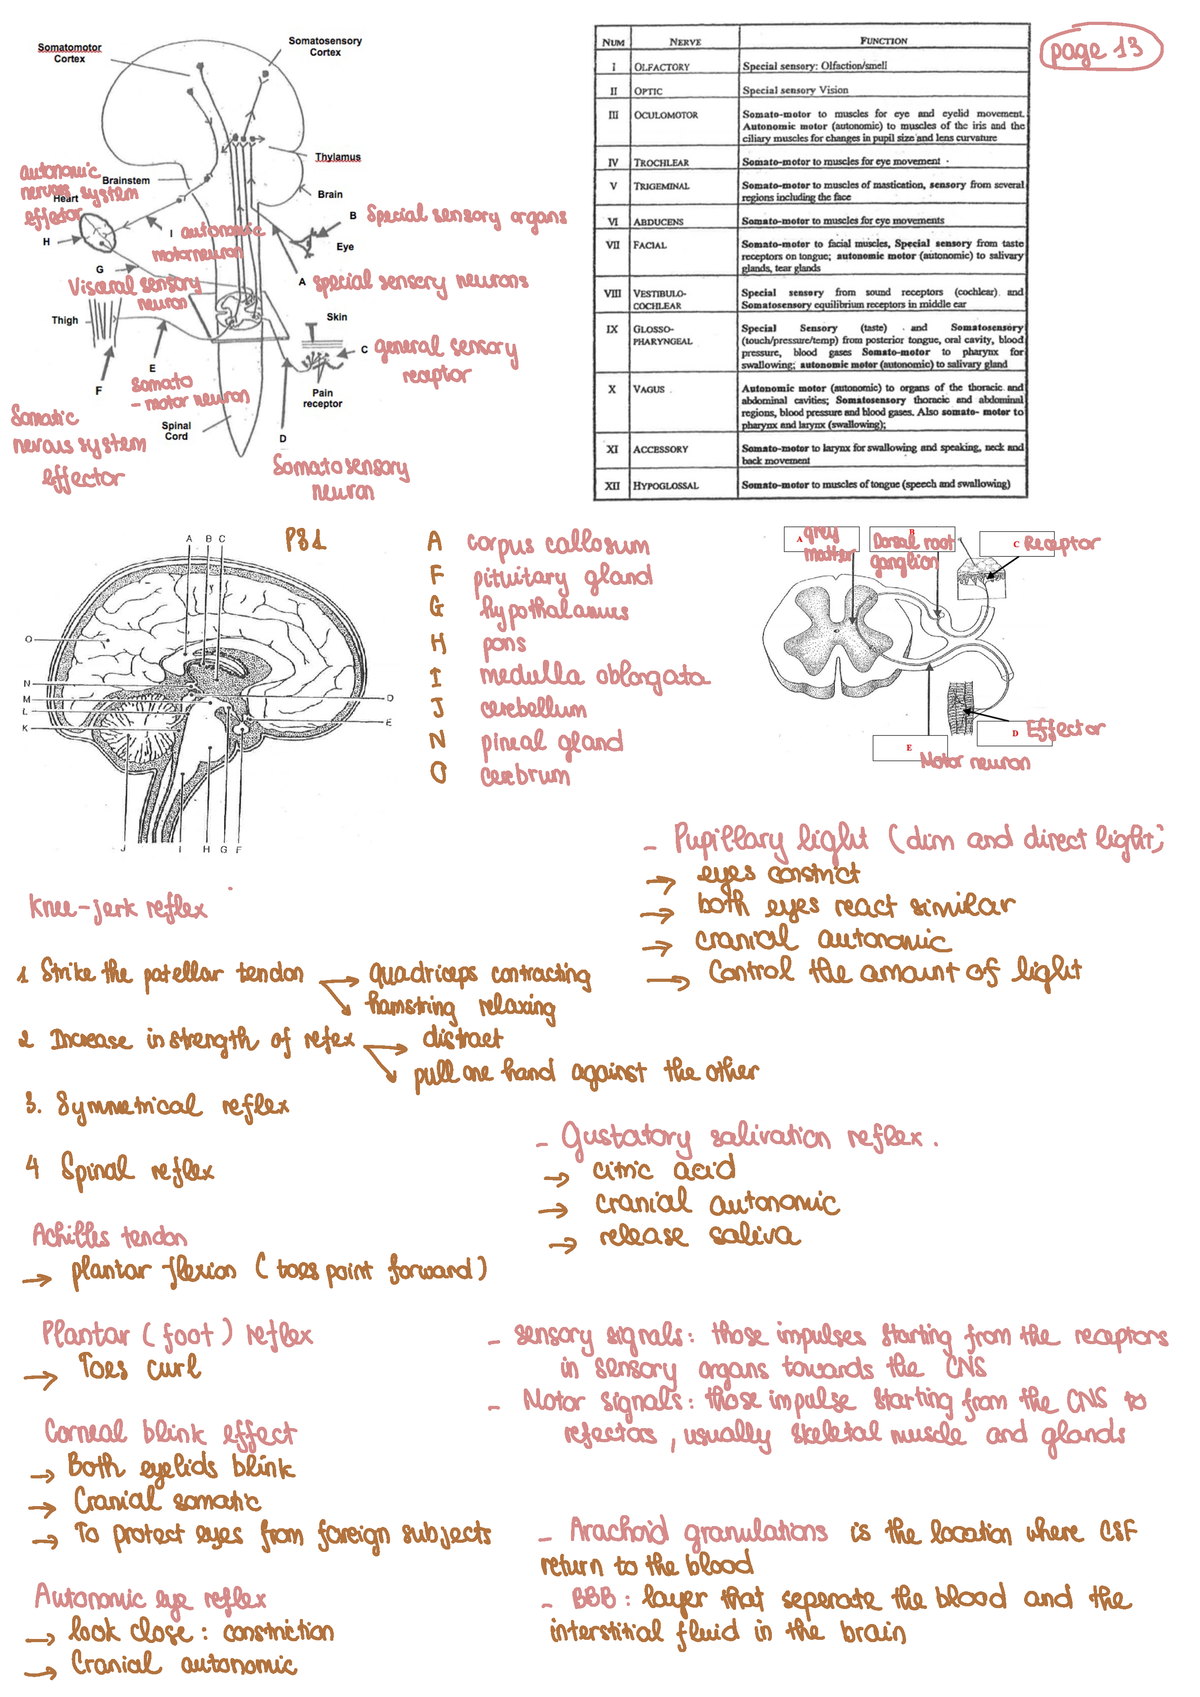 page 13
Somatomotor
Cortex
Somatosensory
Cortex
Thylamus
Brainstem
Brain
autonomic
nervous system
effector
Heart
H
I autonomic
motorneuron
B Special sensory organs
Eye
G
Visceral sensory
neuron
A special sensory neurons
Thigh
Skin
C general sensory
receptor
E
Somato
- motor neuron
F
Pain
receptor
Somatic
nervous system
effector
Spinal
Cord
D
Somatosensory
neuron
NUM NERVE FUNCTION
I OLFACTORY Special sensory: Olfaction/smell
II OPTIC Special sensory Vision
III OCULOMOTOR Somato-motor to muscles for eye and eyelid movement.
Autonomic motor (autonomic) to muscles of the iris and the
ciliary muscles for changes in pupil size and lens curvature
IV TROCHLEAR Somato-motor to muscles for eye movement
V TRIGEMINAL Somato-motor to muscles of mastication, sensory from several
regions including the face
VI ABDUCENS Somato-motor to muscles for eye movements
VII FACIAL Somato-motor to facial muscles, Special sensory from taste
receptors on tongue; autonomic motor (autonomic) to salivary
glands, tear glands
VIII VESTIBULO-
COCHLEAR Special sensory from sound receptors (cochlear) and
Somatosensory equilibrium receptors in middle ear
IX GLOSSO-
PHARYNGEAL Special Sensory (taste) and Somatosensory
(touch/pressure/temp) from posterior tongue, oral cavity, blood
pressure, blood gases Somato-motor to pharynx for
swallowing; autonomic motor (autonomic) to salivary gland
X VAGUS Autonomic motor (autonomic) to organs of the thoracic and
abdominal cavities; Somatosensory thoracic and abdominal
regions, blood pressure and blood gases. Also somato- motor to
pharynx and larynx (swallowing);
XI ACCESSORY Somato-motor to larynx for swallowing and speaking, neck and
back movement
XII HYPOGLOSSAL Somato-motor to muscles of tongue (speech and swallowing)
A B C
P81
O
N
M
L
K
D
E
J I H G F
A corpus callosum
F pituitary gland
G hypothalamus
H pons
I medulla oblongata
J cerebellum
N pineal gland
O cerebrum
A grey
matter
B
Dorsal root
ganglion
C Receptor
D Effector
E
Motor neuron
- Pupillary light (dim and direct light)
→ eyes constrict
→ both eyes react similar
→ cranial autonomic
→ Control the amount of light
Knee-jerk reflex
1 Strike the patellar tendon → quadriceps contracting
→ hamstring relaxing
2 Increase in strength of refex → distract
→ pull one hand against the other
3. Symmetrical reflex
4 Spinal reflex
- Gustatory salivation reflex.
→ citric acid
→ cranial autonomic
→ release saliva
Achilles tendon
→ plantar flexion (toes point forward)
Plantar (foot) reflex
→ Toes curl
Corneal blink effect
→ Both eyelids blink
→ Cranial somatic
→ To protect eyes from foreign subjects
Autonomic eye reflex
→ look close: constriction
→ Cranial autonomic
- sensory signals: those impulses starting from the receptors
in sensory organs towards the CNS
- Motor signals: those impulse starting from the CNS to
refectors, usually skeletal muscle and glands
- Arachoid granulations is the location where CSF
return to the blood
- BBB: layer that seperate the blood and the
interstitial fluid in the brain